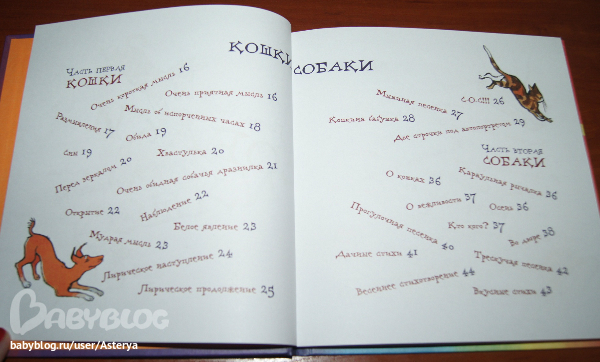 КОШКИ
СОБАКИ
Часть первая
КОШКИ
Очень короткая мысль 16
Очень приятная мысль 16
Размышления 17
Мысль об испорченных часах 18
Сны 19
Обида 19
Хвастулька 20
Перед зеркалом 20
Очень обидная собачья дразнилка 21
Открытие 22
Наблюдение 22
Белое явление 23
Мудрая мысль 23
Лирическое наступление 24
Лирическое продолжение 25
Мышиная песенка 27
С.О.С!!! 26
Кошкина бабушка 28
Две строчки под автопортретом 29
Часть вторая
СОБАКИ
О кошках 36
Караульная рычалка 36
О вежливости 37
Осень 36
Прогулочная песенка 40
Кто кого? 37
Во дворе 38
Дачные стихи 41
Трескучая песенка 42
Весеннее стихотворение 44
Вкусные стихи 43
BABYBLOG
babyblog.ru/user/Asterya